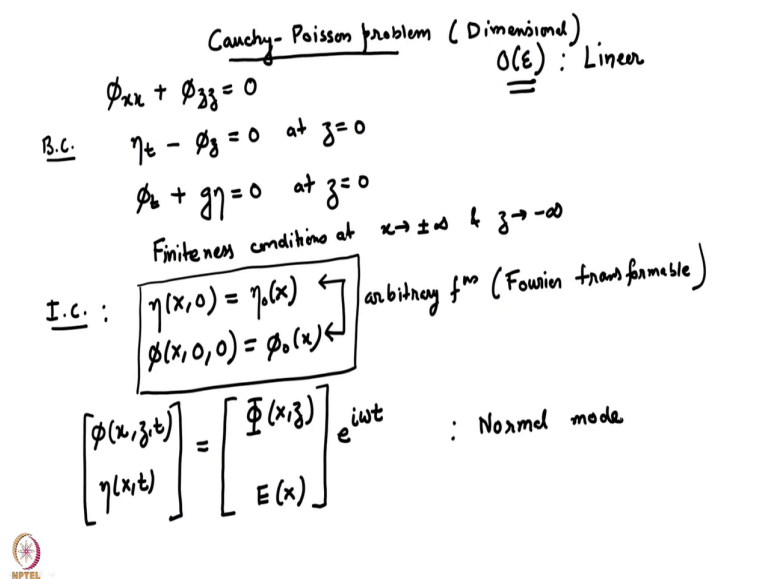 Cauchy-Poisson problem (Dimensional)
O(ε) : Linear
ϕxx + ϕzz = 0
B.C. ηt - ϕz = 0 at z=0
ϕt + gη = 0 at z=0
Finiteness conditions at x→ ±∞ & z→ -∞
I.C. : η(x,0) = η₀(x)
ϕ(x,0,0) = ϕ₀(x)
arbitrary fⁿˢ (Fourier transformable)
[ϕ(x,z,t) = [Φ(x,z) e^{iωt} : Normal mode
η(x,t)] E(x)]
NPTEL